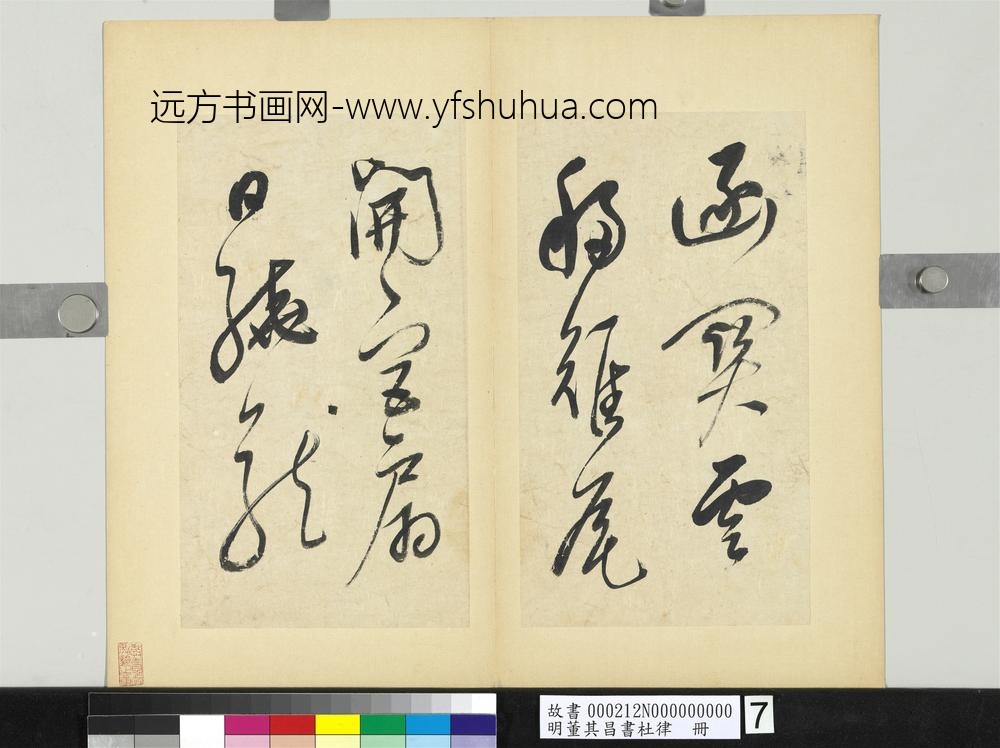 远方书画网-www.yfshuhua.com
函關雲
移雉尾
開宮扇
日繞龍
故書 000212N000000000
明董其昌書杜律 冊
7